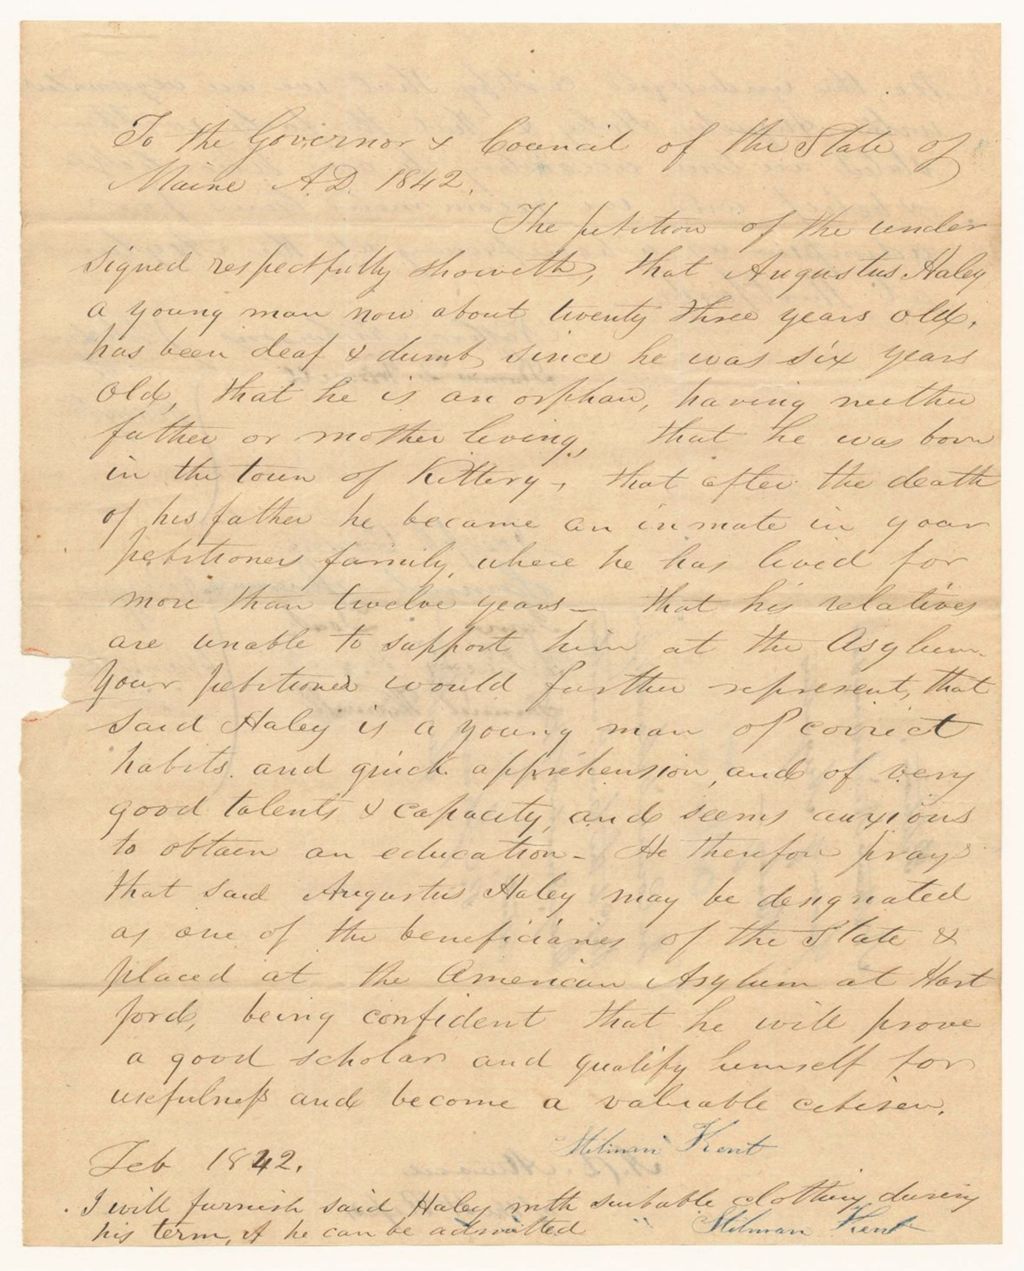 To the Governor & Council of the State of
Maine A.D. 1842.
The petition of the under
signed respectfully showeth, that Augustus Haley
a young man now about twenty three years old,
has been deaf & dumb since he was six years
old, that he is an orphan, having neither
father or mother living, that he was born
in the town of Kittery, that after the death
of his father he became an inmate in your
petitioners family, where he has lived for
more than twelve years – that his relatives
are unable to support him at the Asylum.
Your petitioner would further represent, that
said Haley is a young man of correct
habits, and quick apprehension, and of very
good talents & capacity, and seems anxious
to obtain an education – He therefore prays
that said Augustus Haley may be designated
as one of the beneficiaries of the State &
placed at the American Asylum at Hart
ford, being confident that he will prove
a good scholar and qualify himself for
usefulness and become a valuable citisen.
Stilman Kent
Feb 1842.
I will furnish said Haley with suitable clothing during
his term, if he can be admitted " Stilman Kent